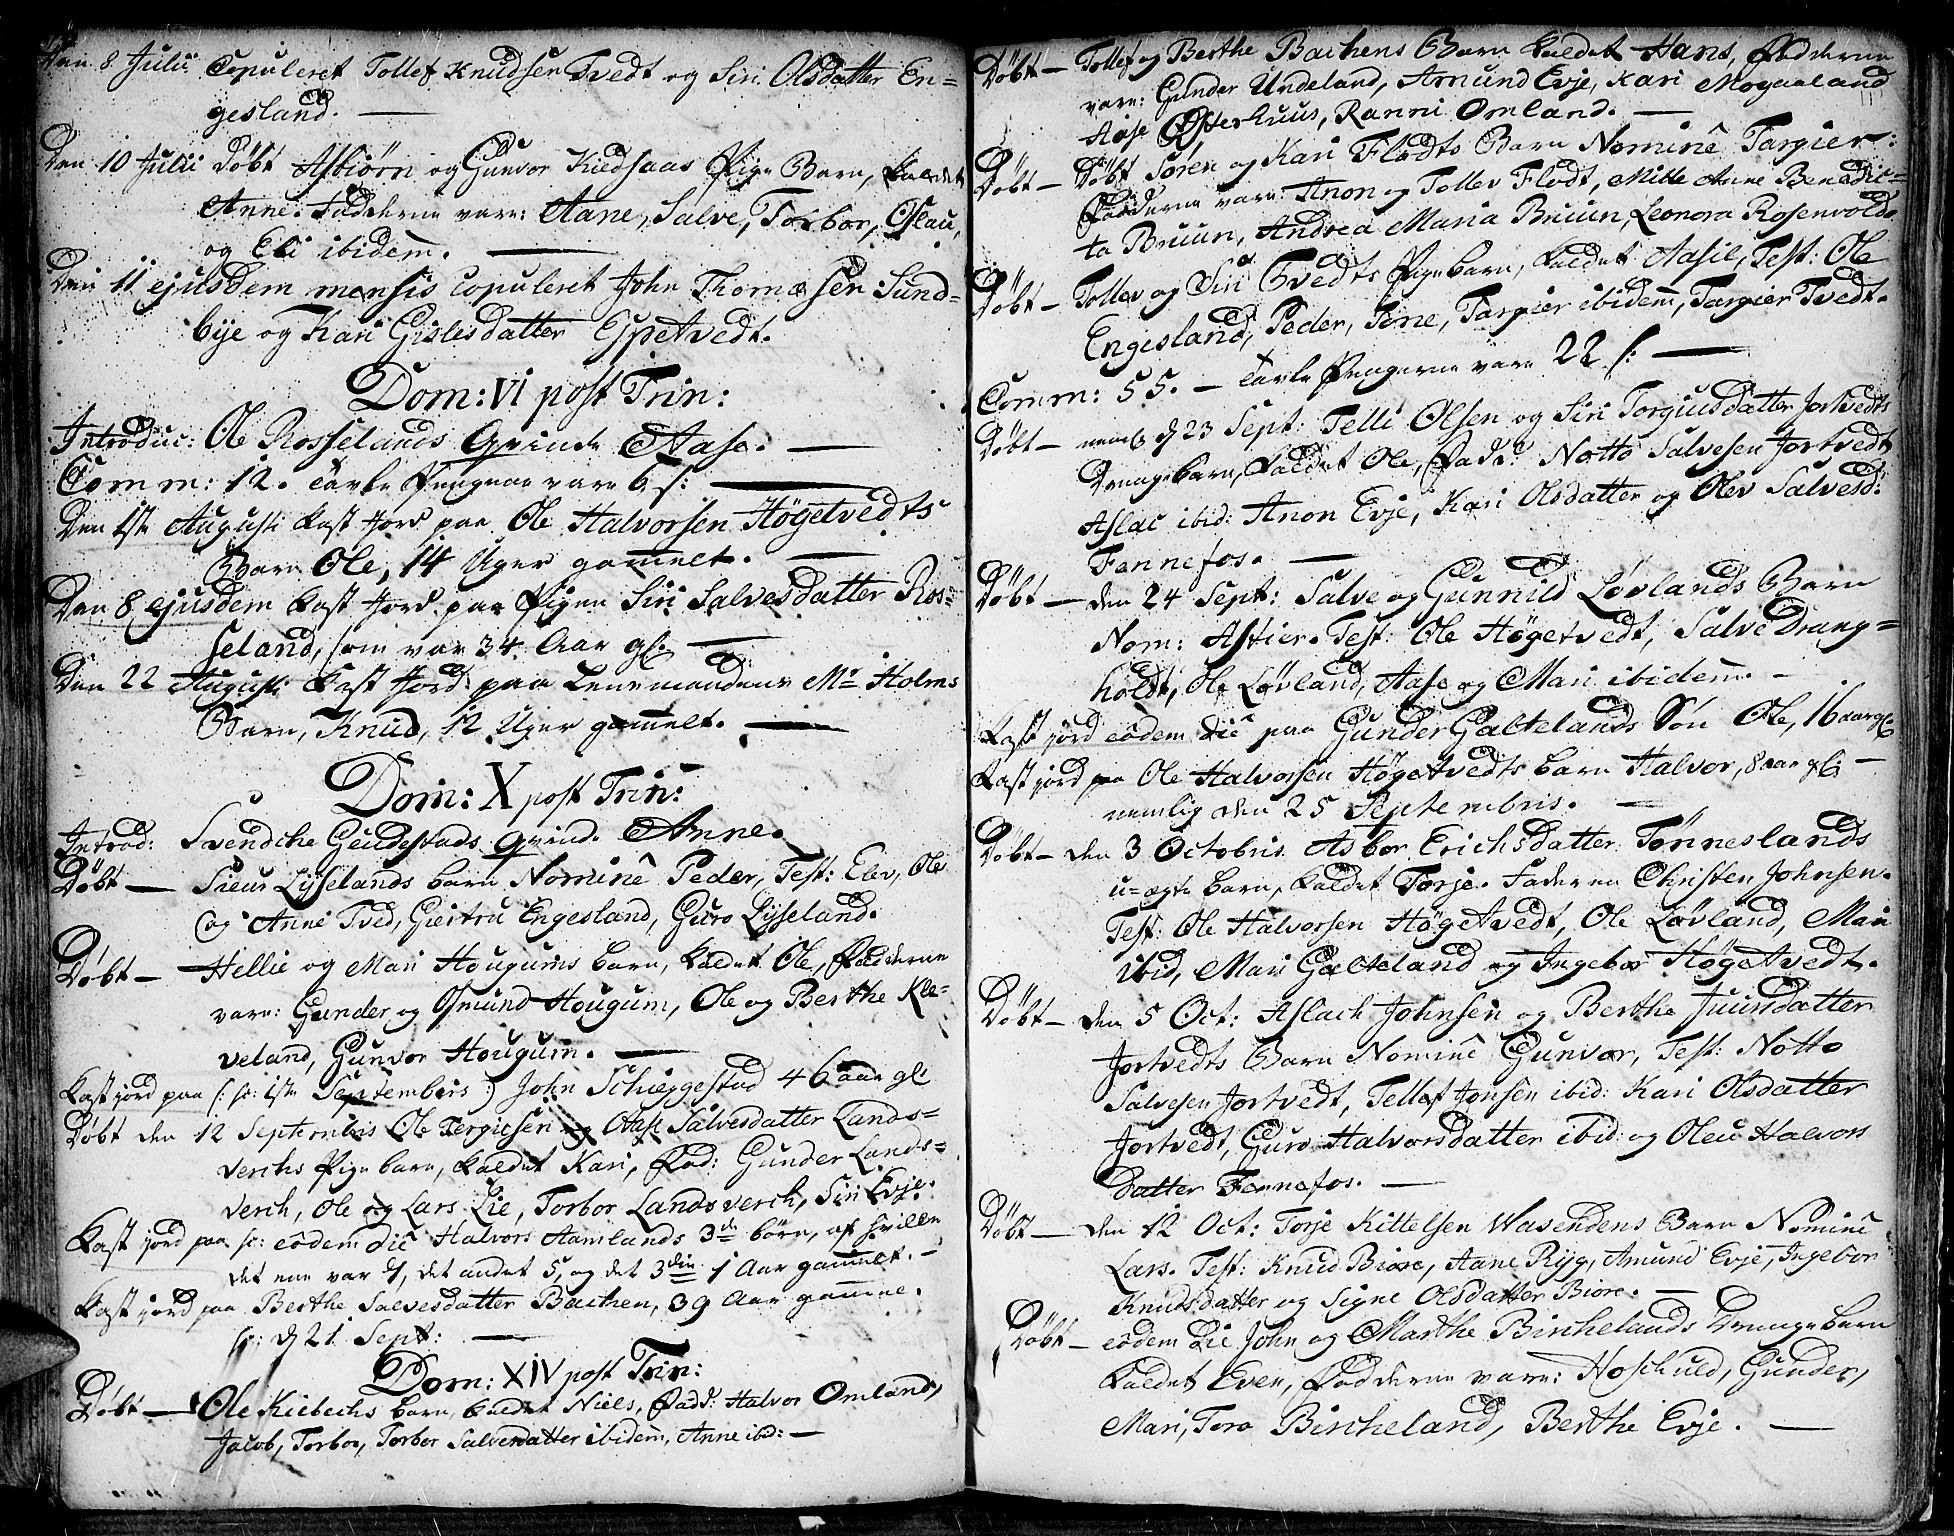 Den 8 Julii Copuleret Tollef Knudsen Tvedt og Siri Olsdatter En=
gesland. —
Den 10 Julii Døbt Asbiørn og Gunvor Kiedsaas Pige Barn, kaldet
Anne. Fadderne vare: Aane, Salve, Torbor, Oslau,
og Eli ibidem. —
Den 11 ejusdem mensis copuleret John Thomæsen Sund=
bye og Kari Gislesdatter Espetvedt.
Dom: VI post Trin:
Introduc: Ole Rosselands Qvinde Aase. —
Comm: 12. Tavle Pengene vare 6 s: —
Den 1ste Augusti kast Jord paa Ole Halvorsen Høgetvedts
Barn Ole, 14 Uger gammelt. —
Den 8 ejusdem kast Jord paa Pigen Siri Salvesdatter Ros=
seland, som var 34 Aar gl. —
Den 22 Augusti kast Jord paa Lensmandens Mr Holms
Barn, Knud, 12 Uger gammelt. —
Dom: X post Trin:
Introd: Svenche Geidestads qvinde Anne.
Døbt — Sieur Lyselands barn Nominê Peder, Test: Elev, Ole
og Anne Tved, Giertru Engesland, Guro Lyseland.
Døbt — Hellie og Mari Hougums barn, kaldet Ole, Fadderne
vare: Gunder og Osmund Hougum, Ole og Berthe Kle=
veland, Gunvor Hougum. —
Kast jord paa /: sc: 1ste Septembris :/ John Schieggestad 46 aar gl
Døbt den 12 Septembris Ole Tergiesen og Aase Salvesdatter Lands=
verchs Pige barn, kaldet Kari, Fad: Gunder Lands=
verch, Ole og Lars Lie, Torbor Landsverch, Siri Evje.
Kast jord paa sc: eodem die Halvors Aamlands 3de børn, af hvilke
det ene var 7, det andet 5, og det 3die 1 Aar gammelt. —
Kast jord paa Berthe Salvesdatter Bachen, 39 Aar gamme.
sc: d 21 Sept: —
Dom: XIV post Trin:
Døbt — Ole Kiebechs barn, kaldet Niels, Fadd: Halvor Omland,
Jacob, Torbor, Torbor Salvesdatter ibidem, Anne ibid: —
Døbt — Tollef og Berthe Bachens Barn kaldet Hans, Fadderne
vare: Gunder Undeland, Amund Evje, Kari Mogaaland
Aase Østerhuus, Ranni Omland. —
Døbt — Døbt Søren og Kari Flodts Barn Nominê Targier:
Fadderne vare: Anon og Tollev Flodt, Mille Anne Benedic=
ta Bruun, Andrea Maria Bruun, Leonora Rosenvold.
Døbt — Tollev og Siri Tvedts Pigebarn, kaldet Aasil, Test: Ole
Engesland, Peder, Tone, Targier ibidem, Targier Tvedt.
Comm: 55. — Tavle Pengerne vare 22 s: —
Døbt — neml d 23 Sept: Telli Olsen og Siri Torgiusdatter Jortvedts
Drengebarn, kaldet Ole, Fadd: Notto Salvesen Jortvedt
Aslac ibid: Anon Evje, Kari Olsdatter og Olev Salvesd:
Fennefos. —
Døbt — den 24 Sept: Salve og Gunnild Løvlands Barn
Nom: Astier. Test: Ole Høgetvedt, Salve Drang=
holdt, Ole Løvland, Aase og Mari ibidem. —
Kast jord eodem die paa Gunder Galtelands Søn Ole, 16 aar gl
Kast jord paa Ole Halvorsen Høgetvedts barn Halvor, 8 aar gl —
nemlig den 25 Septembris. —
Døbt — den 3 Octobris Asbor Erichsdatter Tønneslands
u=ægte barn, kaldet Torje. Faderen Christen Johnsen.
Test: Ole Halvorsen Høgetvedt, Ole Løvland, Mari
ibid, Mari Galteland og Ingebor Høgetvedt.
Døbt — den 5 Oct: Aslach Johnsen og Berthe Juursdatter
Jortvedts Barn Nominê Gunvor, Test: Notto
Salvesen Jortvedt, Tellef Jonsen ibid: Kari Olsdatter
Jortvedt, Guro Halvorsdatter ibid: og Oleu Halvors
datter Fennefos. —
Døbt — den 12 Oct: Torje Kittelsen Wasendens Barn Nominê
Lars. Test: Knud Biore, Aane Ryg, Amund Evje, Ingebor
Knudsdatter og Signe Olsdatter Biore. —
Døbt — eodem die John og Marthe Birchelands Drengebarn
kaldet Even, Fadderne vare: Hoschuld, Gunder,
Mari, Tora Bircheland, Berthe Evje. —